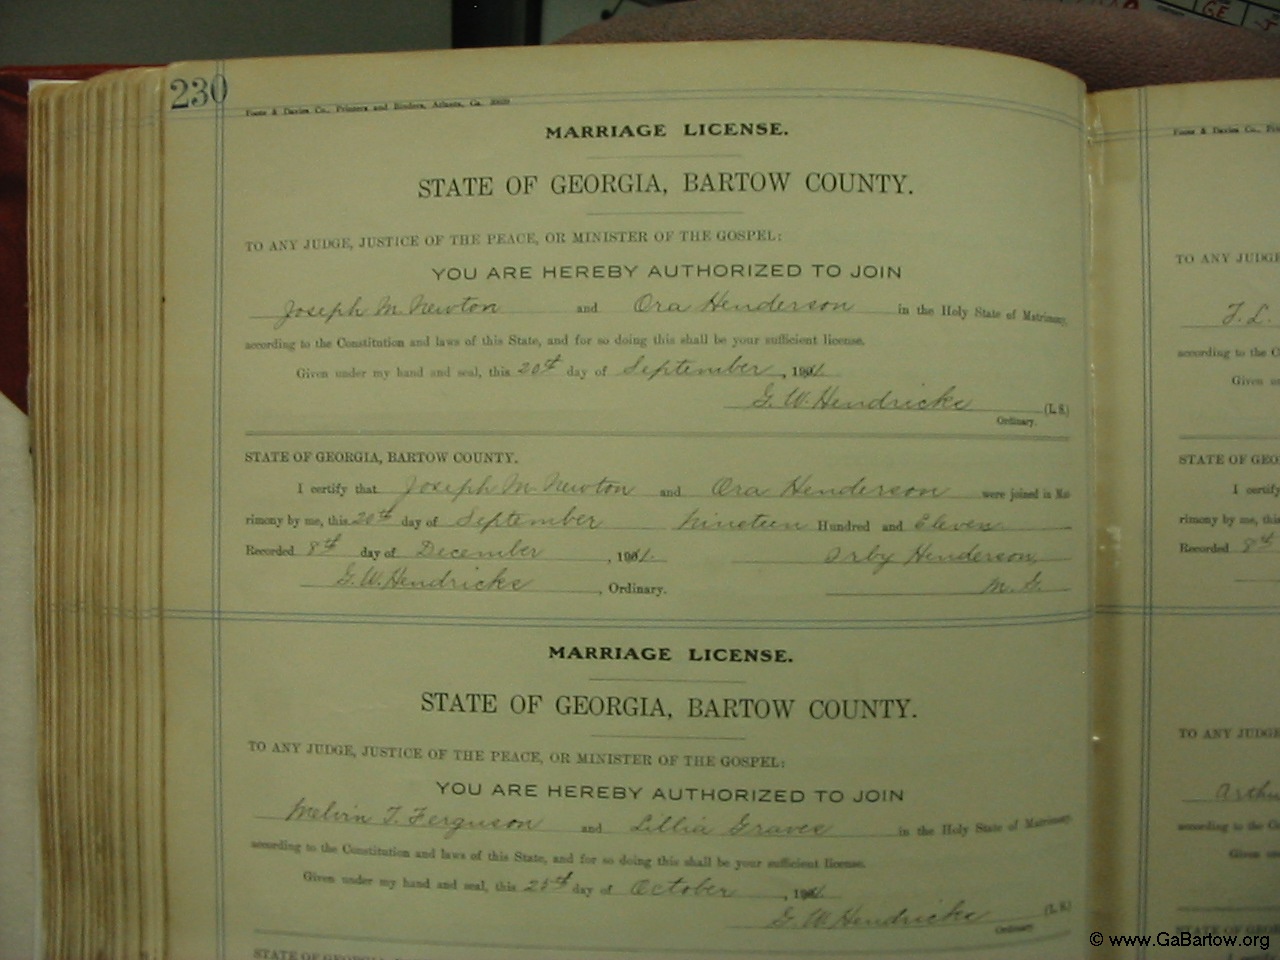 230
Foote & Davies Co., Printers and Binders, Atlanta, Ga.
MARRIAGE LICENSE.
STATE OF GEORGIA, BARTOW COUNTY.
TO ANY JUDGE, JUSTICE OF THE PEACE, OR MINISTER OF THE GOSPEL:
YOU ARE HEREBY AUTHORIZED TO JOIN
Joseph M. Newton and Ora Henderson in the Holy State of Matrimony,
according to the Constitution and laws of this State, and for so doing this shall be your sufficient license.
Given under my hand and seal, this 20th day of September, 1911
G. W. Hendricks (L. S.)
Ordinary.
STATE OF GEORGIA, BARTOW COUNTY.
I certify that Joseph M. Newton and Ora Henderson were joined in Mat-
rimony by me, this 20th day of September Nineteen Hundred and Eleven
Recorded 8th day of December, 1911. Orby Henderson,
G. W. Hendricks, Ordinary. M. G.
MARRIAGE LICENSE.
STATE OF GEORGIA, BARTOW COUNTY.
TO ANY JUDGE, JUSTICE OF THE PEACE, OR MINISTER OF THE GOSPEL:
YOU ARE HEREBY AUTHORIZED TO JOIN
Melvin T. Ferguson and Lillia Graves in the Holy State of Matrimony,
according to the Constitution and laws of this State, and for so doing this shall be your sufficient license.
Given under my hand and seal, this 25th day of October, 1911
G. W. Hendricks (L. S.)
Ordinary.
STATE OF GEORGIA, BARTOW COUNTY.
Foote & Davies Co., Pri
TO ANY JUDGE
J. L.
according to the C
Given un
STATE OF GEO
I certify
rimony by me, this
Recorded 8th
TO ANY JUDGE
Arthu
according to the Co
Given un
STATE OF GEOR
© www.GaBartow.org